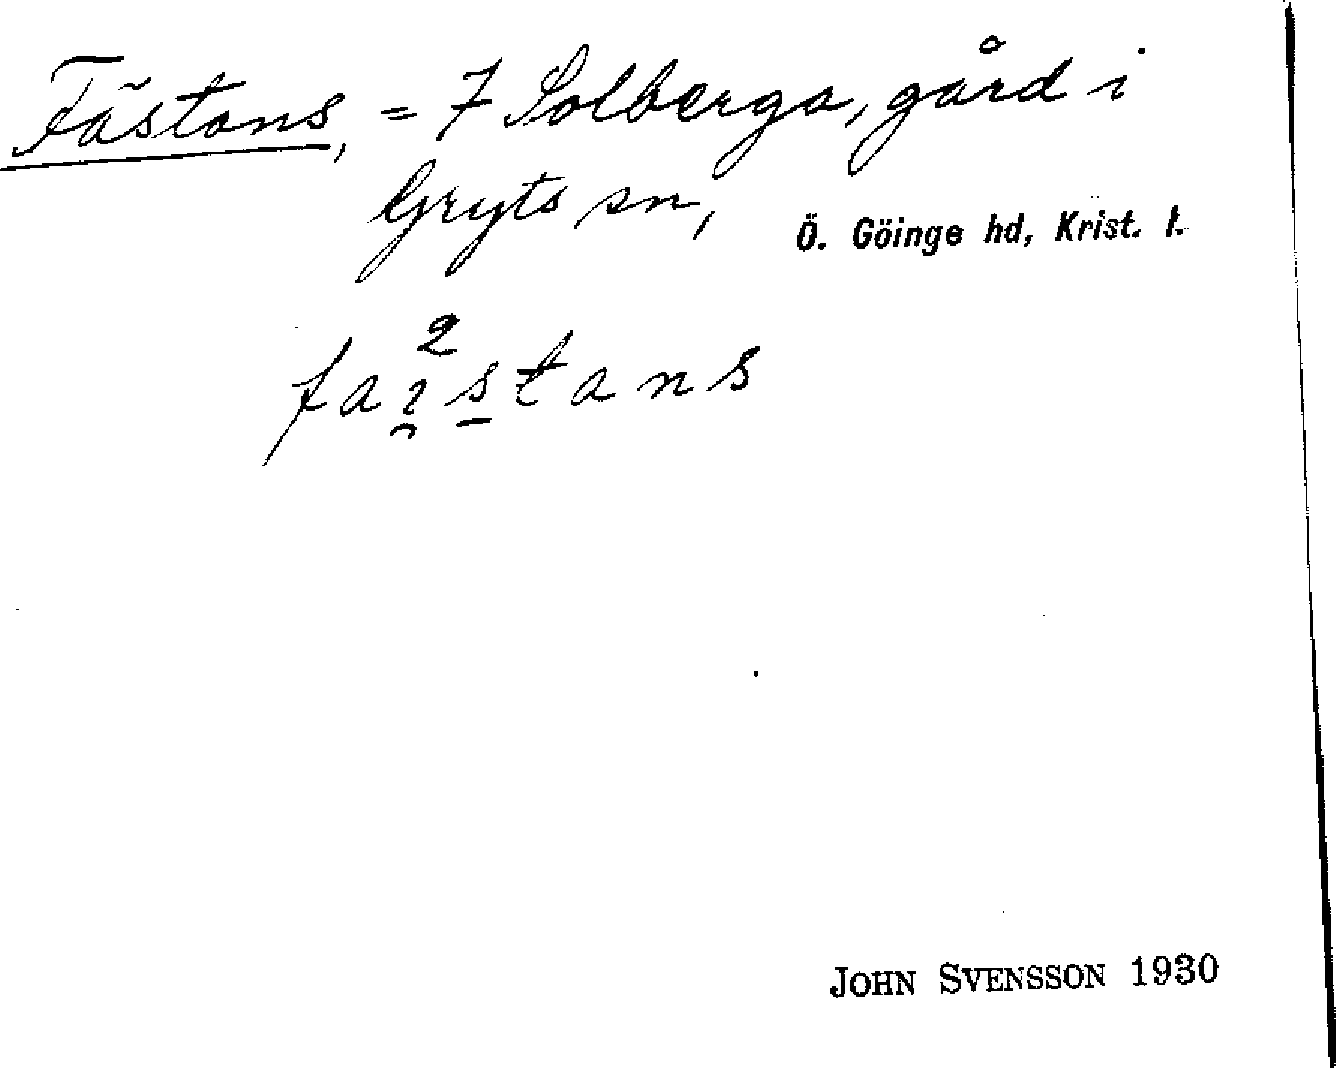 Fästans, = 7 Solberga, gård i
Gryts sn, Ö. Göinge hd, Krist. l.
faı̯²s̱tans
JOHN SVENSSON 1930